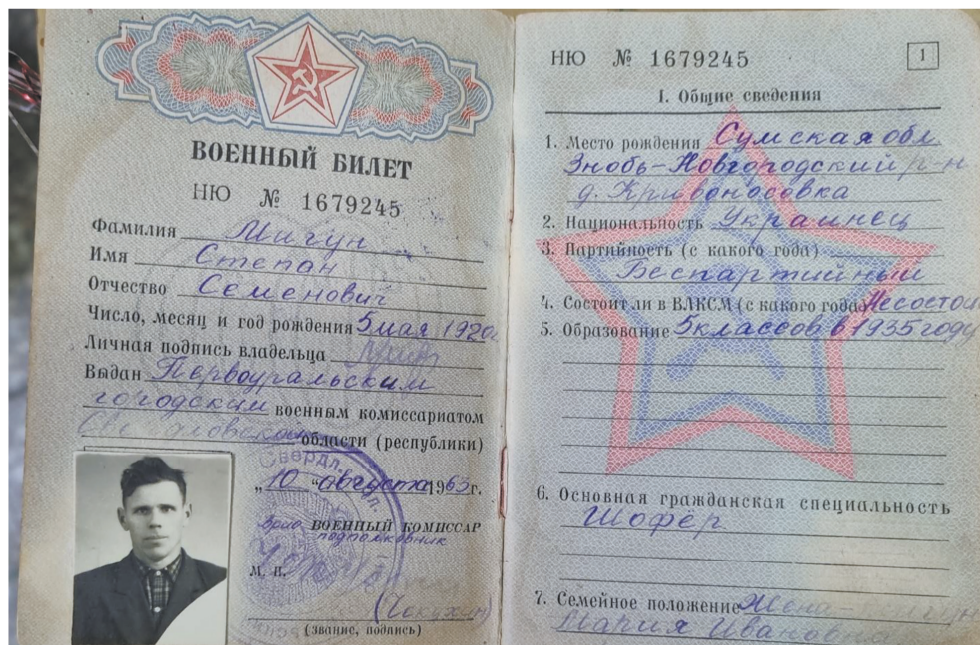 ВОЕННЫЙ БИЛЕТ
НЮ № 1679245
Фамилия Мигун
Имя Степан
Отчество Семенович
Число, месяц и год рождения 5 мая 1920
Личная подпись владельца
Выдан Первоуральским
городским военным комиссариатом
Свердловской области (республики)
Свердл.
„10“ августа 1963 г.
Врио ВОЕННЫЙ КОМИССАР
подполковник
М. П.
(звание, подпись)
НЮ № 1679245
1
I. Общие сведения
1. Место рождения Сумская обл.
Знобь-Новгородский р-н
д. Кривоносовка
2. Национальность Украинец
3. Партийность (с какого года)
Беспартийный
4. Состоит ли в ВЛКСМ (с какого года) Не состои
5. Образование 5 классов в 1935 году
6. Основная гражданская специальность
Шофёр
7. Семейное положение Жена
Мария Ивановна